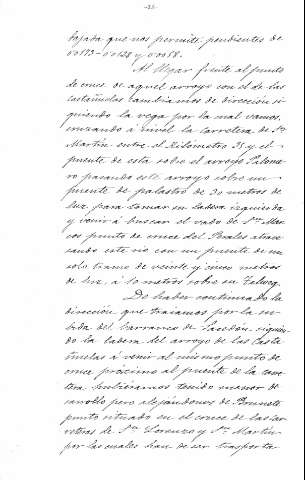 -23-
bajada que nos permite pendientes de
0'0193 - 0'0128 y 0'0058.
Al llegar frente al punto
de cruce de aquel arroyo con el de las
castañuelas cambiamos de direccion si-
guiendo la vega por la mal vamos,
cruzando á nivel la carretera de Sn
Martin entre el Kilometro 35 y el
puente de esta sobre el arroyo Palome-
ro pasando este arroyo sobre un
puente de palastro de 30 metros de
luz para tomar su ladera izquierda
y venir á buscar el vado de Sn Mar-
cos punto de cruce del Perales atrave-
sando este rio con un puente de un
solo tramo de veinte y cinco metros
de luz á 10 metros sobre su Talweg.
De haber continuado la
direccion que traiamos por la su-
bida del barranco de Sacedón siguien-
do la ladera del arroyo de las Casta-
ñuelas á venir al mismo punto de
cruce próximo al puente de la carre-
tera hubiéramos tenido menor de-
sarrollo pero alejándonos de Brunete
punto situado en el cruce de las car-
reteras de Sn Lorenzo y Sn Martin
por las cuales han de ser trasporta-